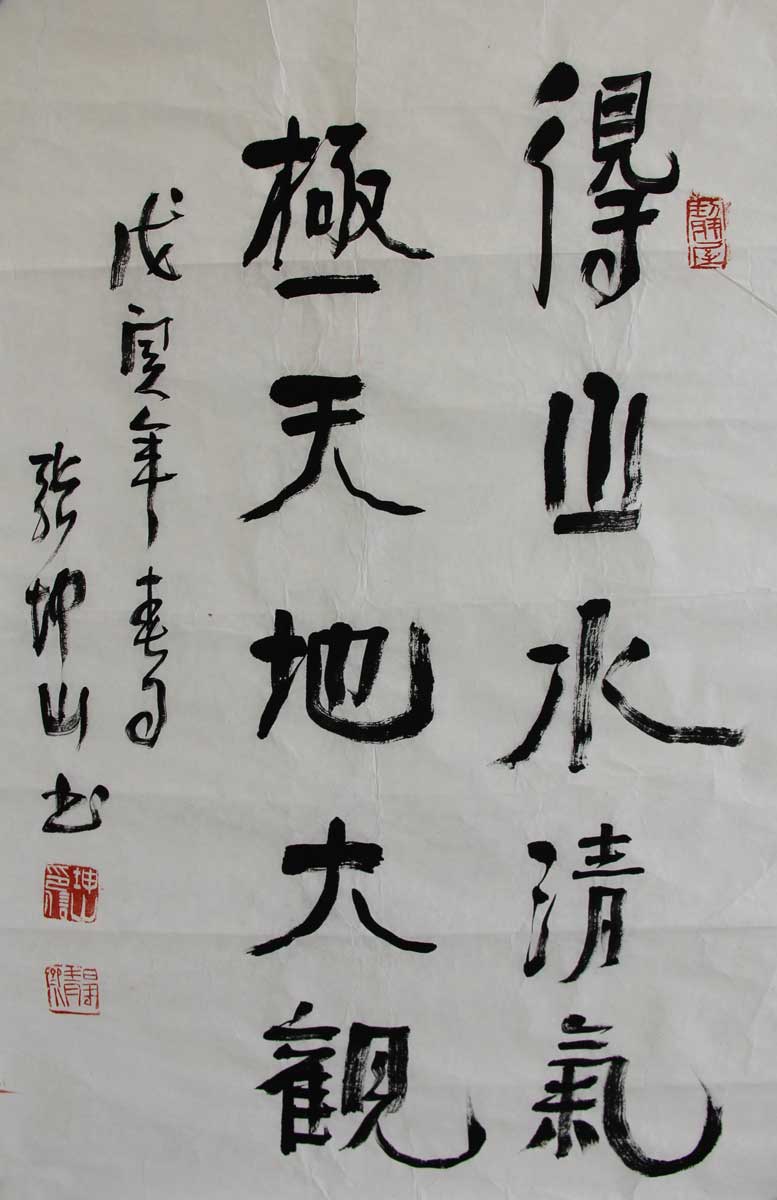 得山水清氣
極天地大觀
戊寅年春
張坤山书